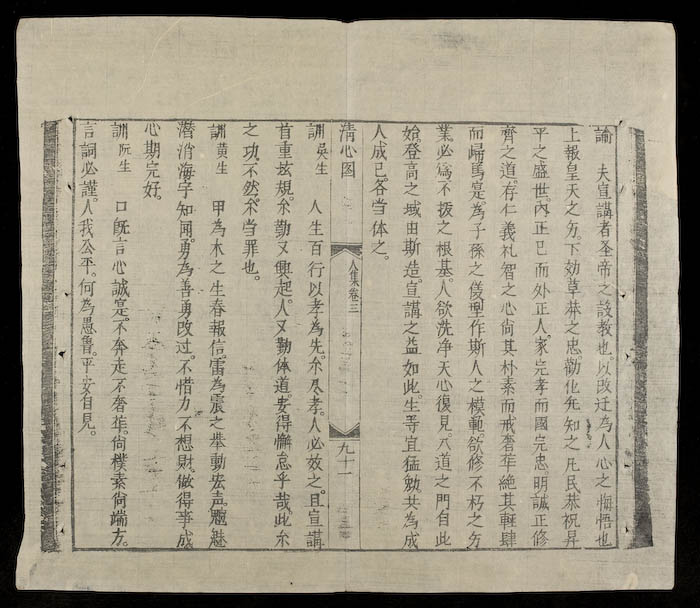 諭　夫宣講者圣帝之設教也。以改迁為人心之悔悟也
上報皇天之夯。下効草莽之忠。勸化旡知之凡民恭祝昇
平之盛世。内正已而外正人。家完孝而國完忠。明誠正修
齊之道。存仁義礼智之心尙其朴素而戒奢華絶其輕肆
而歸篤寔為子孫之儀型作斯人之模範。欲修不朽之夯
業必為不拔之根基。人欲洗净天心復見。八道之門自此
始登高之域由斯造。宣講之益如此。生等宜猛勉。共為成
人成已。各当体之。
清心図
訓吳生　人生百行以孝為先。尒尽孝。人必效之。且宣講
首重玆規。尒勤又興起。人又勤体道。安得懈怠乎哉。此尒
之功不然。尒当罪也。
訓黄生　甲為木之生春報信。雷為震之举動宏声。魑魅
潜消海宇知闻。勇為善勇改过。不惜力不想財。做得事成
心期完好。
訓阮生　口旣言心誠寔。不奔走不奢華。尙樸素尙端方。
言詞必謹。人我公平。何為愚魯。平安自見。
人集卷三
九十一